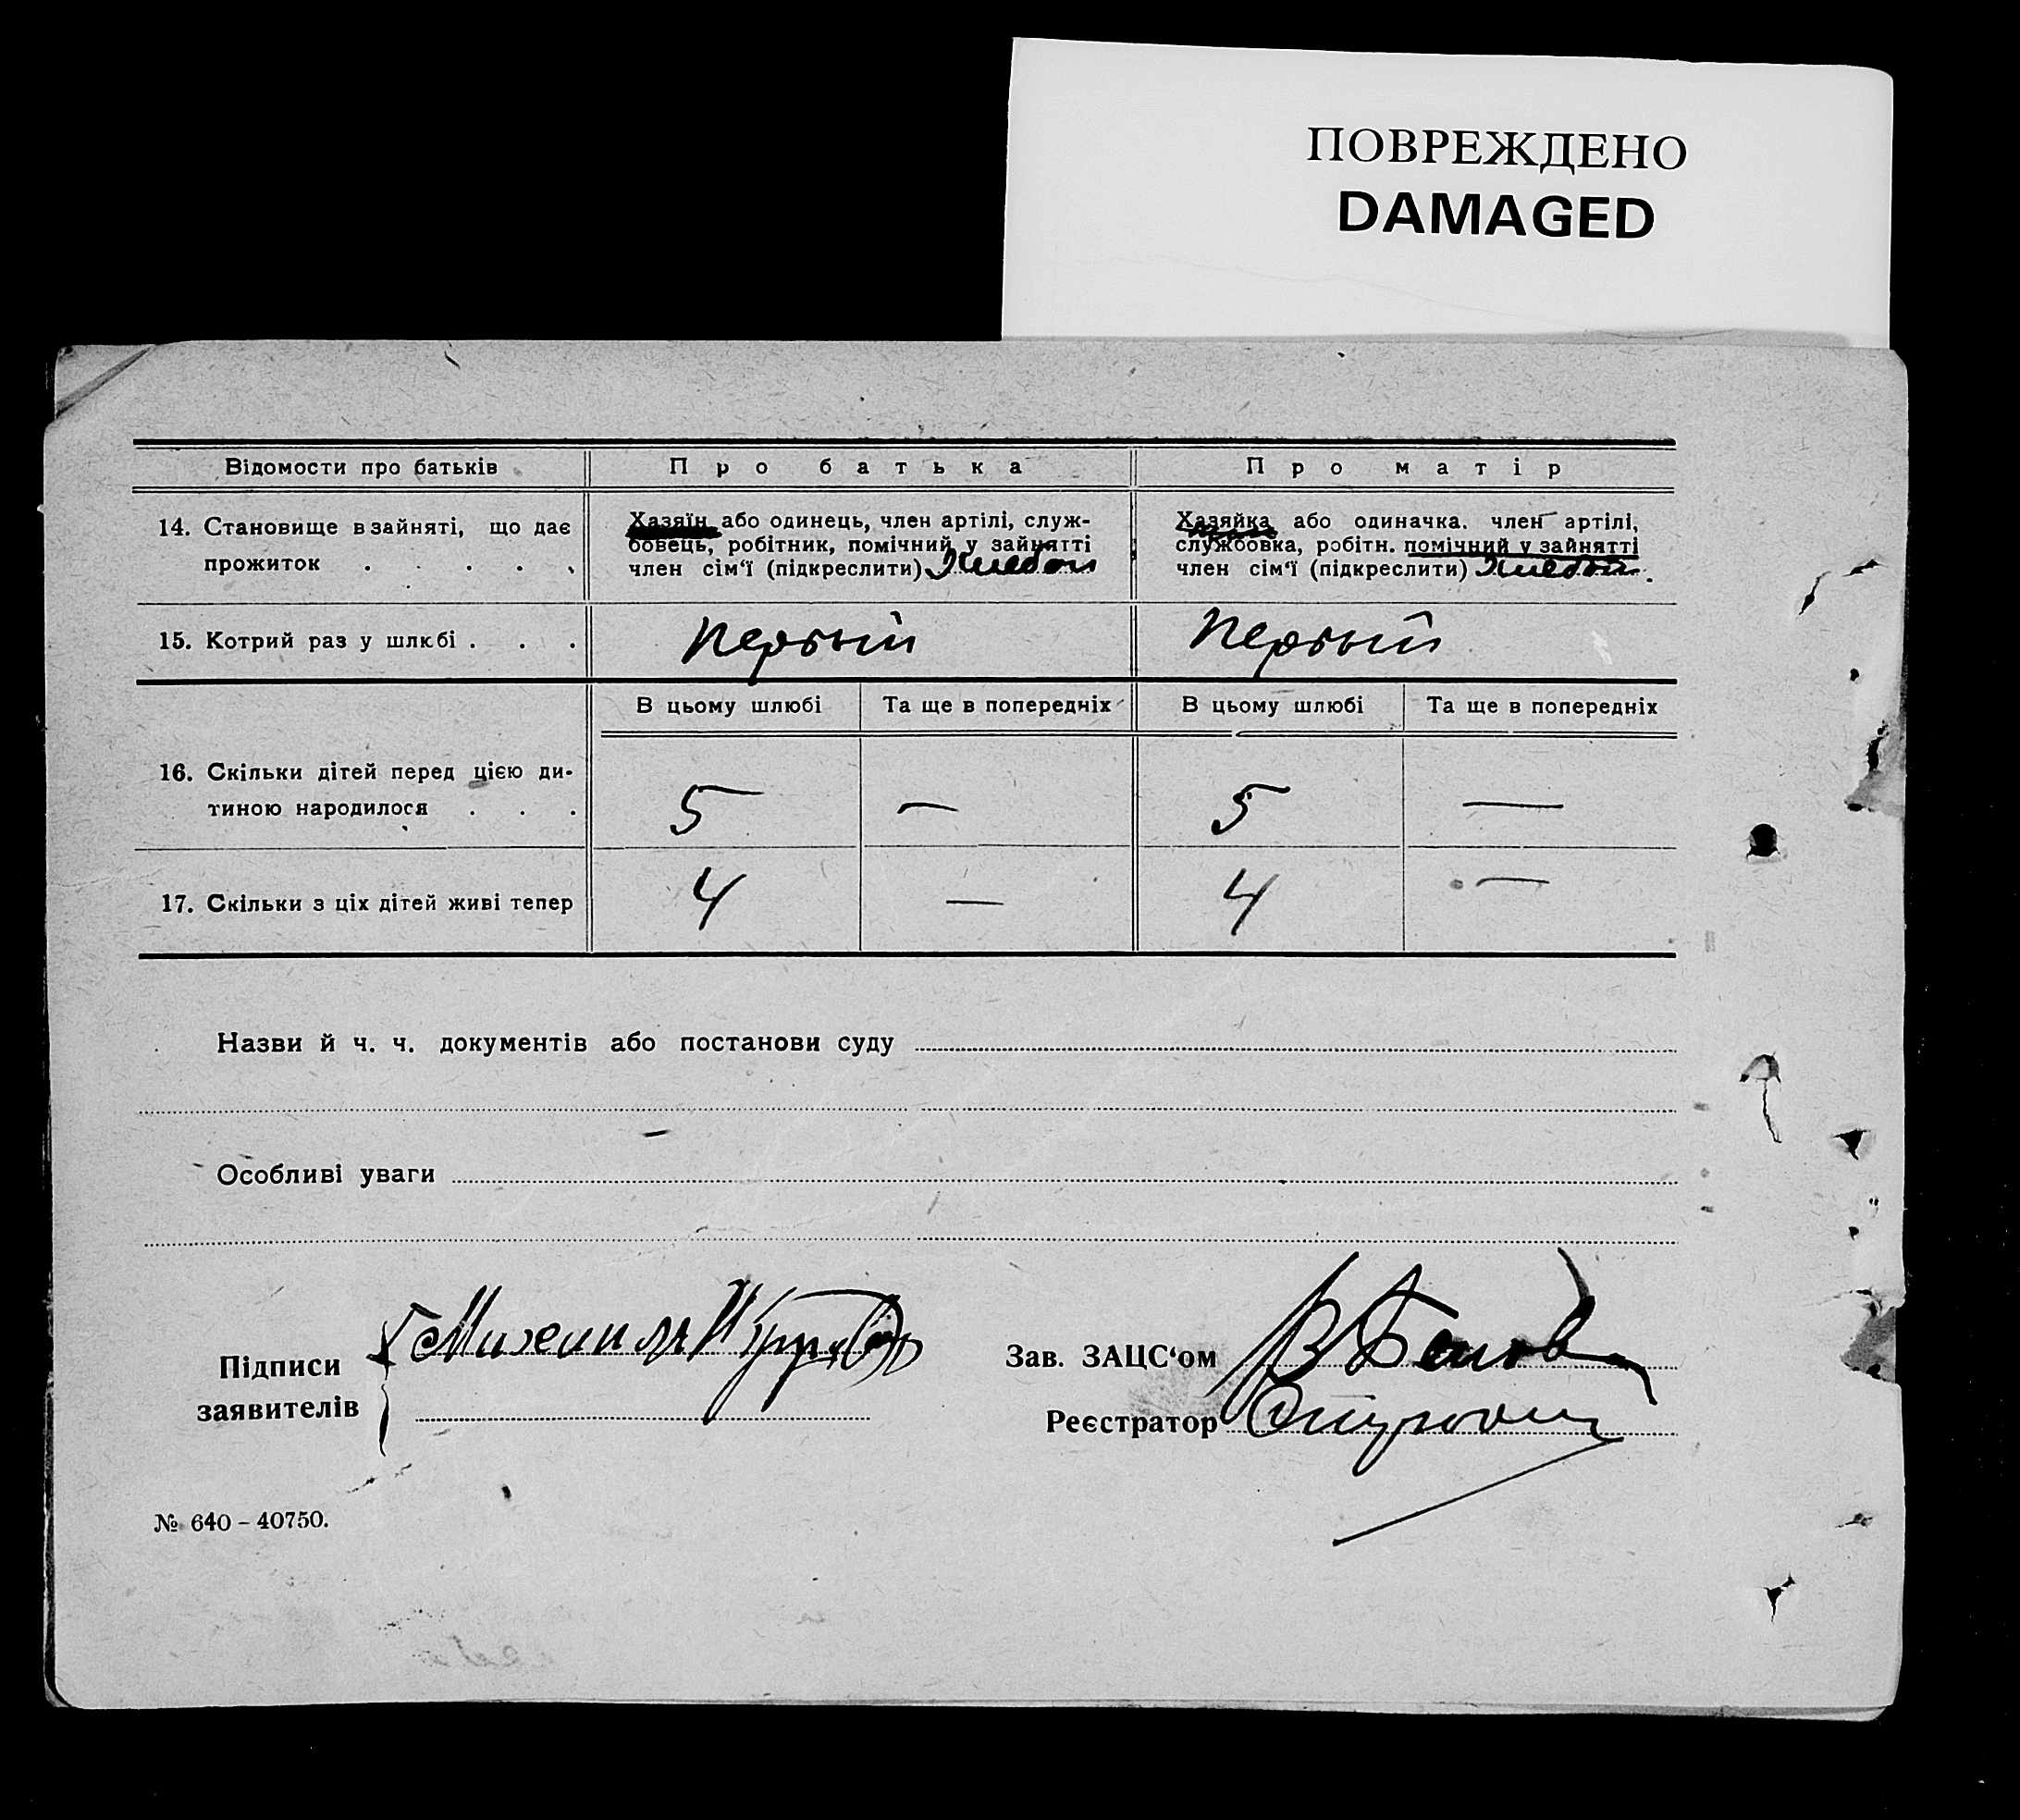 ПОВРЕЖДЕНО
DAMAGED
Відомости про батьків
Про батька
Про матір
14. Становище в зайняті, що дає
прожиток . . . . .
Хазяїн або одинець, член артілі, служ-
бовець, робітник, помічний у зайнятті
член сім'ї (підкреслити)
Хазяйка або одиначка. член артілі,
службовка, робітн. помічний у зайнятті
член сім'ї (підкреслити)
15. Котрий раз у шлюбі . . .
первый
первый
В цьому шлюбі
Та ще в попередніх
В цьому шлюбі
Та ще в попередніх
16. Скільки дітей перед цією ди-
тиною народилося . . .
5 — 5 —
17. Скільки з ціх дітей живі тепер
4 — 4 —
Назви й ч. ч. документів або постанови суду
Особливі уваги
Підписи
заявителів
Зав. ЗАЦС'ом
Реєстратор
№ 640 – 40750.